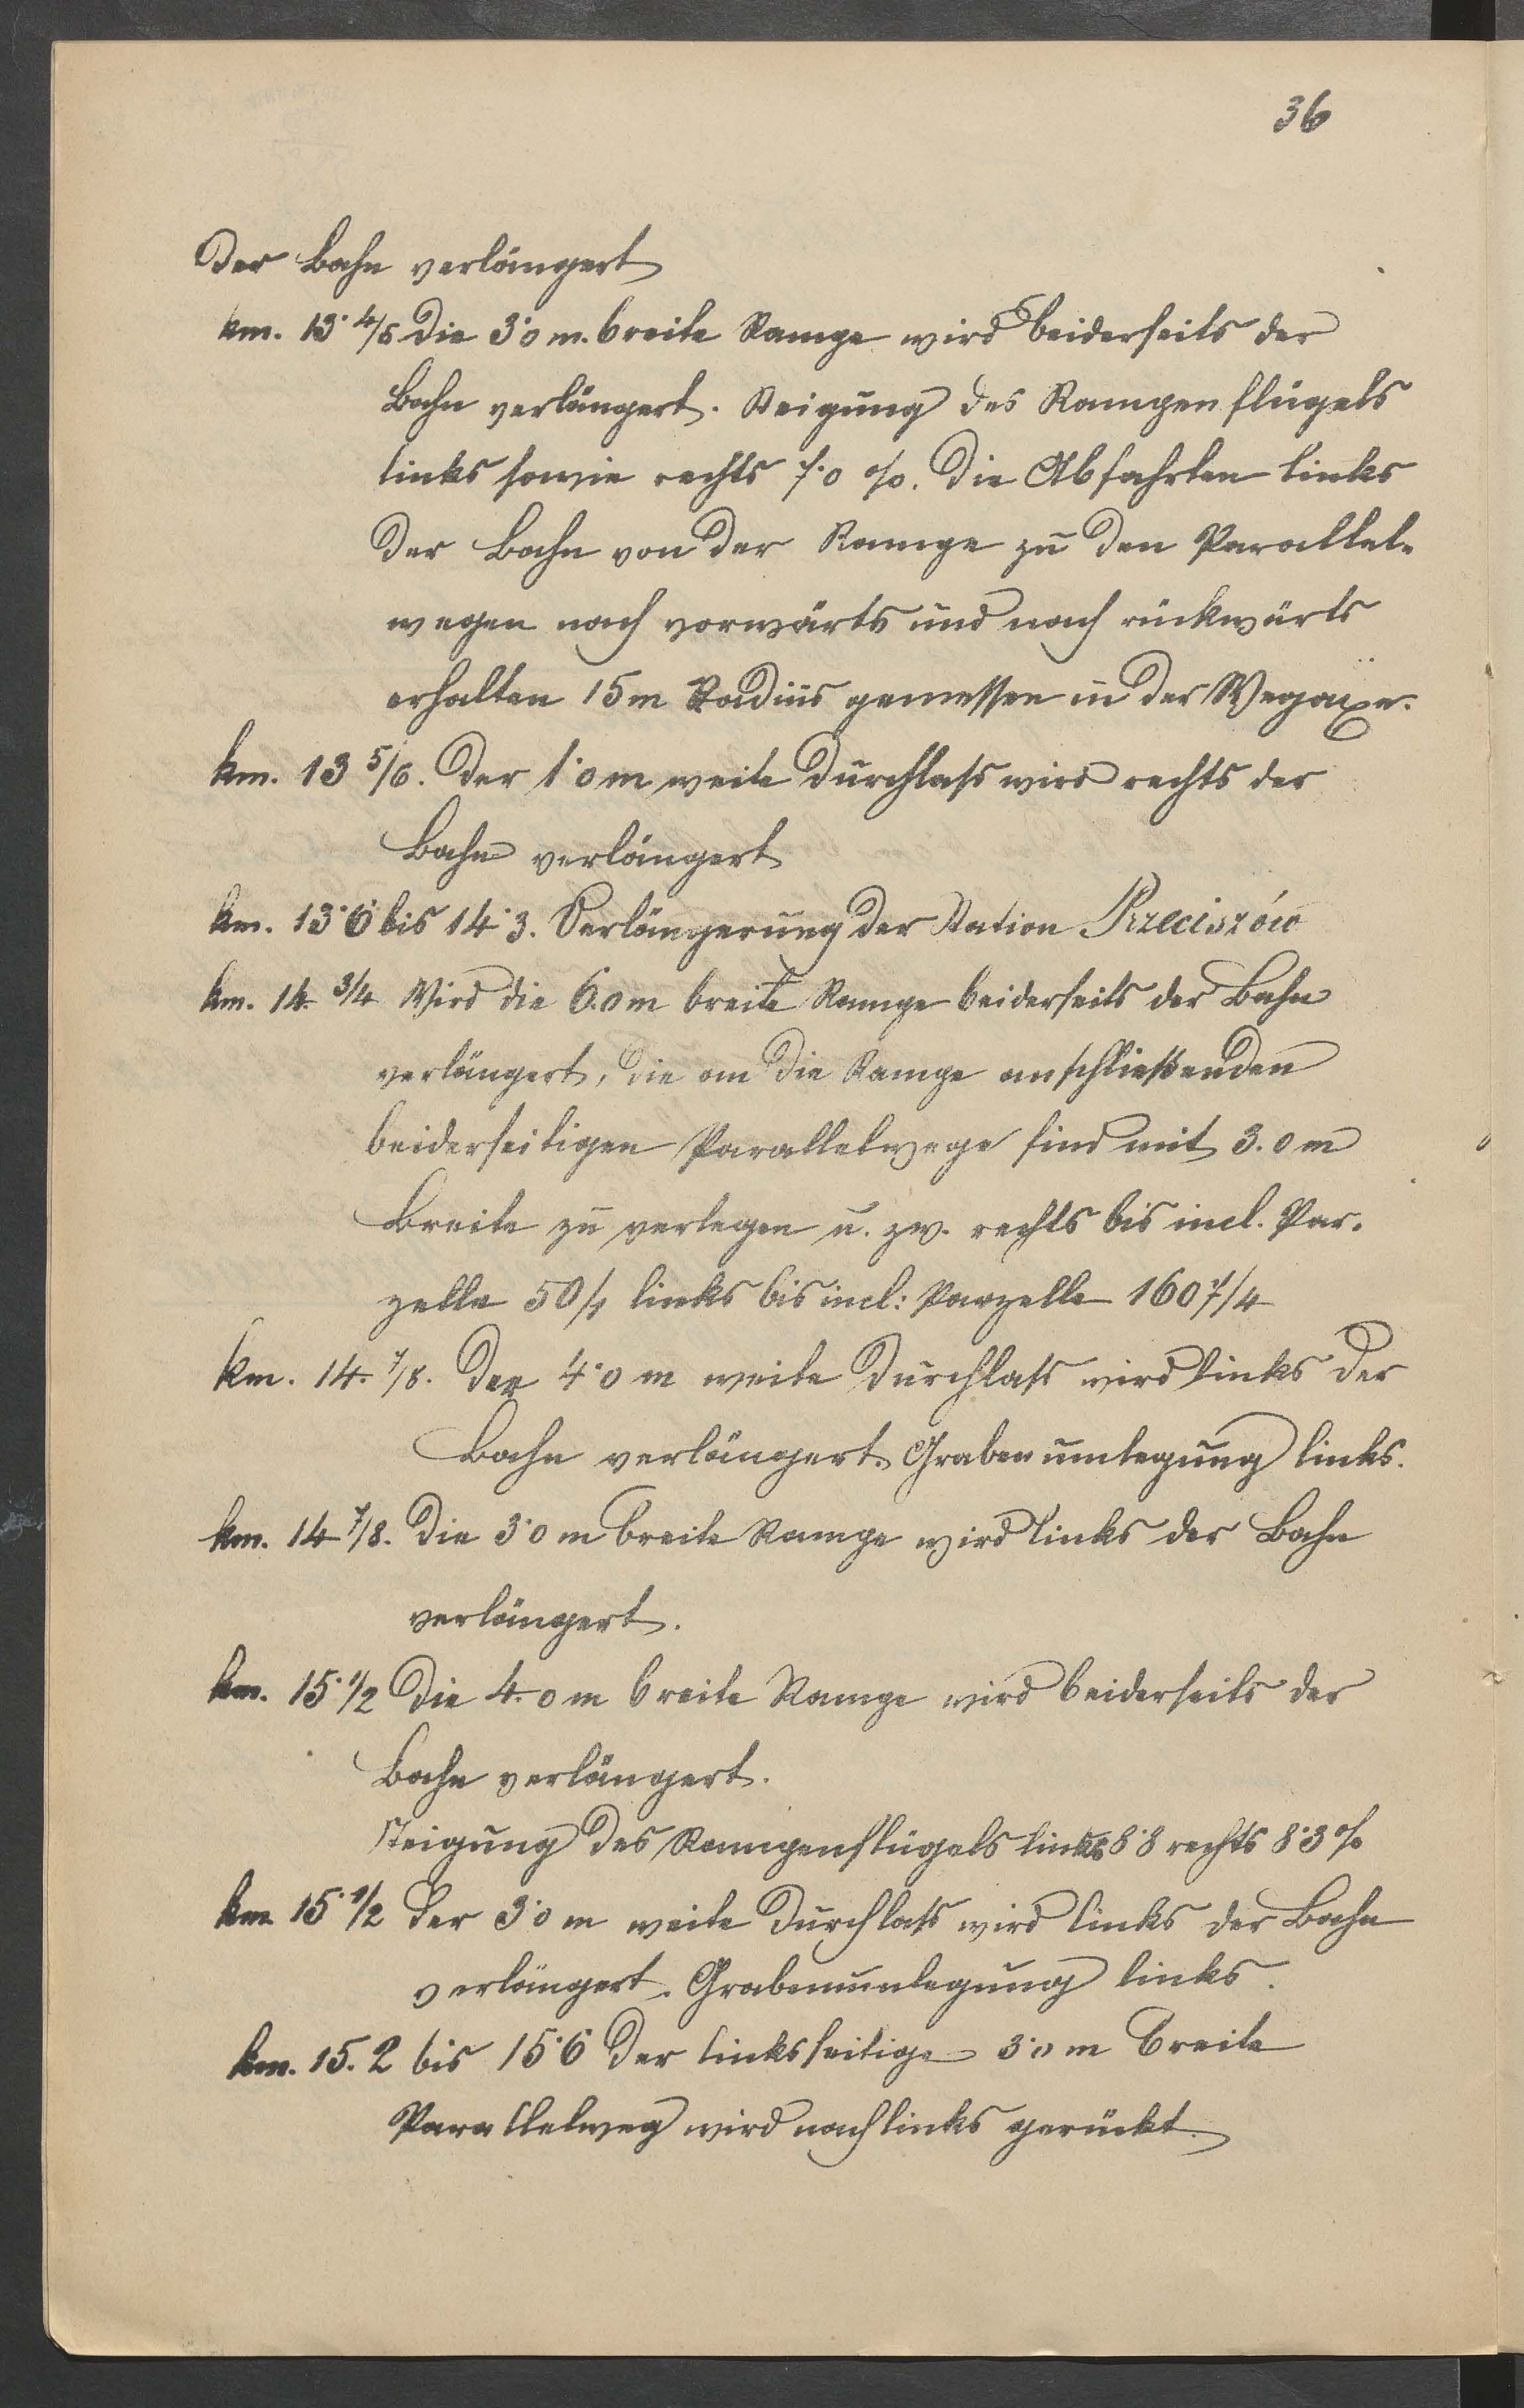 36
der Bahn verlängert
km. 13·4/5 Die 3·0 m. breite Rampe wird beiderseits der
Bahn verlängert. Steigung des Rampenflügels
links sowie rechts 7·0 %. Die Abfahrten links
der Bahn von der Rampe zu den Parallel-
wegen nach vorwärts und nach rückwärts
erhalten 15 m Radius gemessen in der Wegaxe.
km. 13 5/6. Der 1·0 m weite Durchlass wird rechts der
Bahn verlängert
km. 13·6 bis 14·3. Verlängerung der Station Przeciszów
km. 14. 3/4 Wird die 6.0 m breite Rampe beiderseits der Bahn
verlängert, die an die Rampe anschließenden
beiderseitigen Parallelwege sind mit 3.0 m
Breite zu verlegen u. zw. rechts bis incl. Par-
zelle links bis incl: Parzelle
km. 14. 7/8. Der 4·0 m weite Durchlass wird links der
Bahn verlängert. Grabenumlegung links.
km. 14 7/8. Die 3·0 m breite Rampe wird links der Bahn
verlängert.
km. 15·1/2 Die 4.0 m breite Rampe wird beiderseits der
Bahn verlängert.
Steigung des Rampenflügels links 8·8 rechts 8·3 %
km 15·1/2 Der 3·0 m weite Durchlass wird links der Bahn
verlängert. Grabenumlegung links.
km. 15.2 bis 15·6 Der linksseitige 3·0 m breite
Parallelweg wird nach links gerückt.